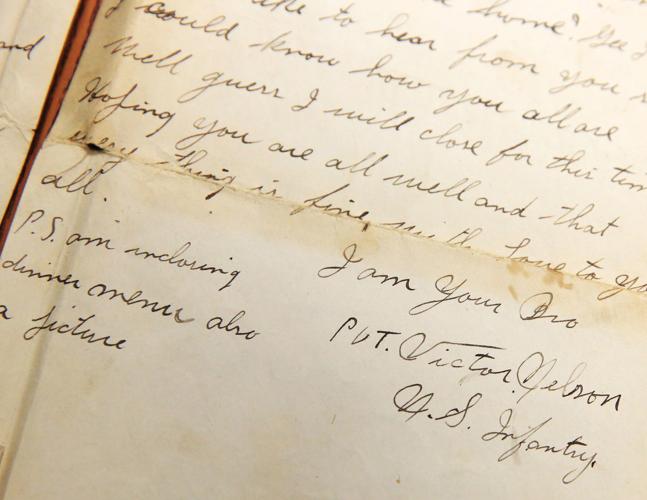 home? Gee I
like to hear from you
I could know how you all are
Well guess I will close for this tim
and
Hoping you are all well and that
every thing is fine, with love to yo
all.
P.S. am inclosing
dinner menu also
a picture
I am Your Bro
PVT. Victor Nelson
U.S. Infantry.